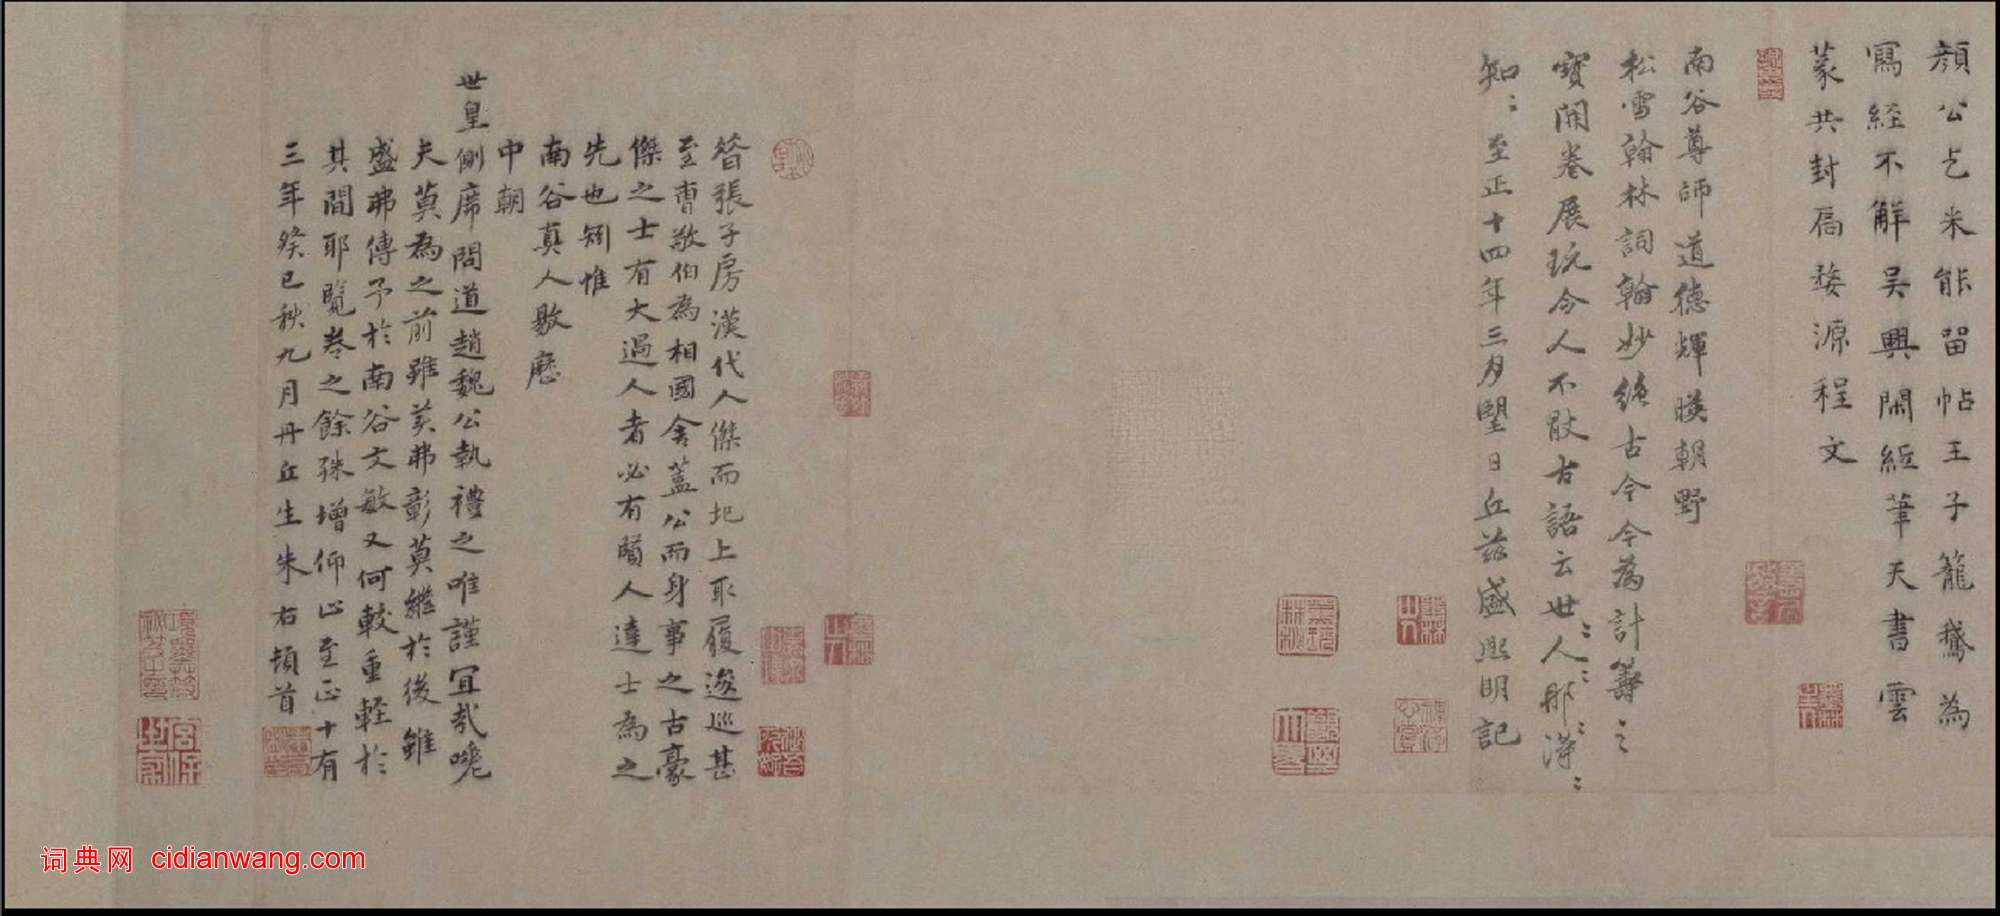 顔公乞米能留帖王子籠鵞為
寫經不解吴興閑經筆天書雲
篆共封扃婺源程文
南谷尊師道德輝暎朝野
松雪翰林詞翰妙絶古今今為計籌之
寶開卷展玩令人不厭古語云世〻人〻那〻得〻
知〻至正十四年三月望日丘兹盛熙明記
昝張子房漢代人傑而圯上取履逡巡甚
至曹敬伯為相國舍蓋公而身事之古豪
傑之士有大過人者必有蹟人達士為之
先也矧惟
南谷真人敭歷
中朝
世皇側席問道趙魏公執禮之唯謹宜哉嘵
夫莫為之前雖美弗彰莫繼於後雖
盛弗傳予於南谷文敏又何較重軽於
其間耶覽卷之餘殊增仰止至正十有
三年癸巳秋九月丹丘生朱右頓首
宮保世家
词典网 cidianwang.com